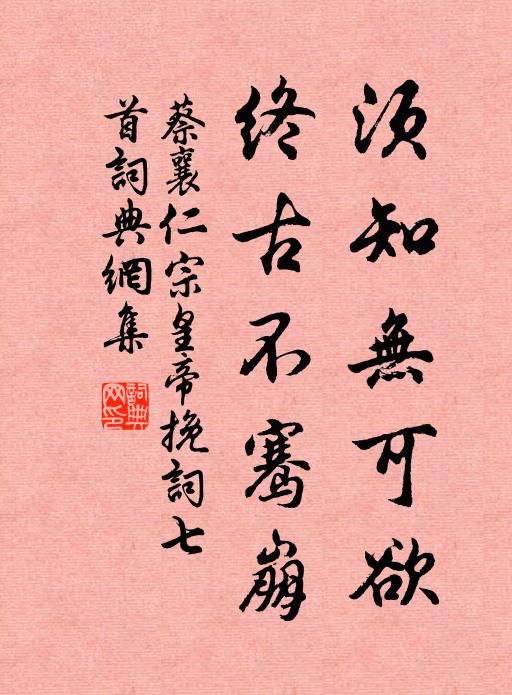 須知無可欲
終古不騫崩
蔡襄仁宗皇帝挽詞七
首詞典網集
詞典
网印